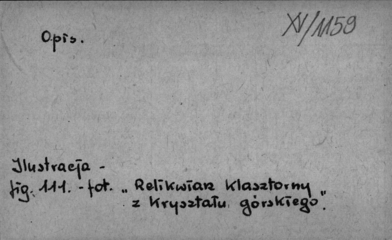 XV/1159
Opis.
Ilustracja -
fig. 111. - fot. „Relikwiarz klasztorny
z kryształu górskiego".